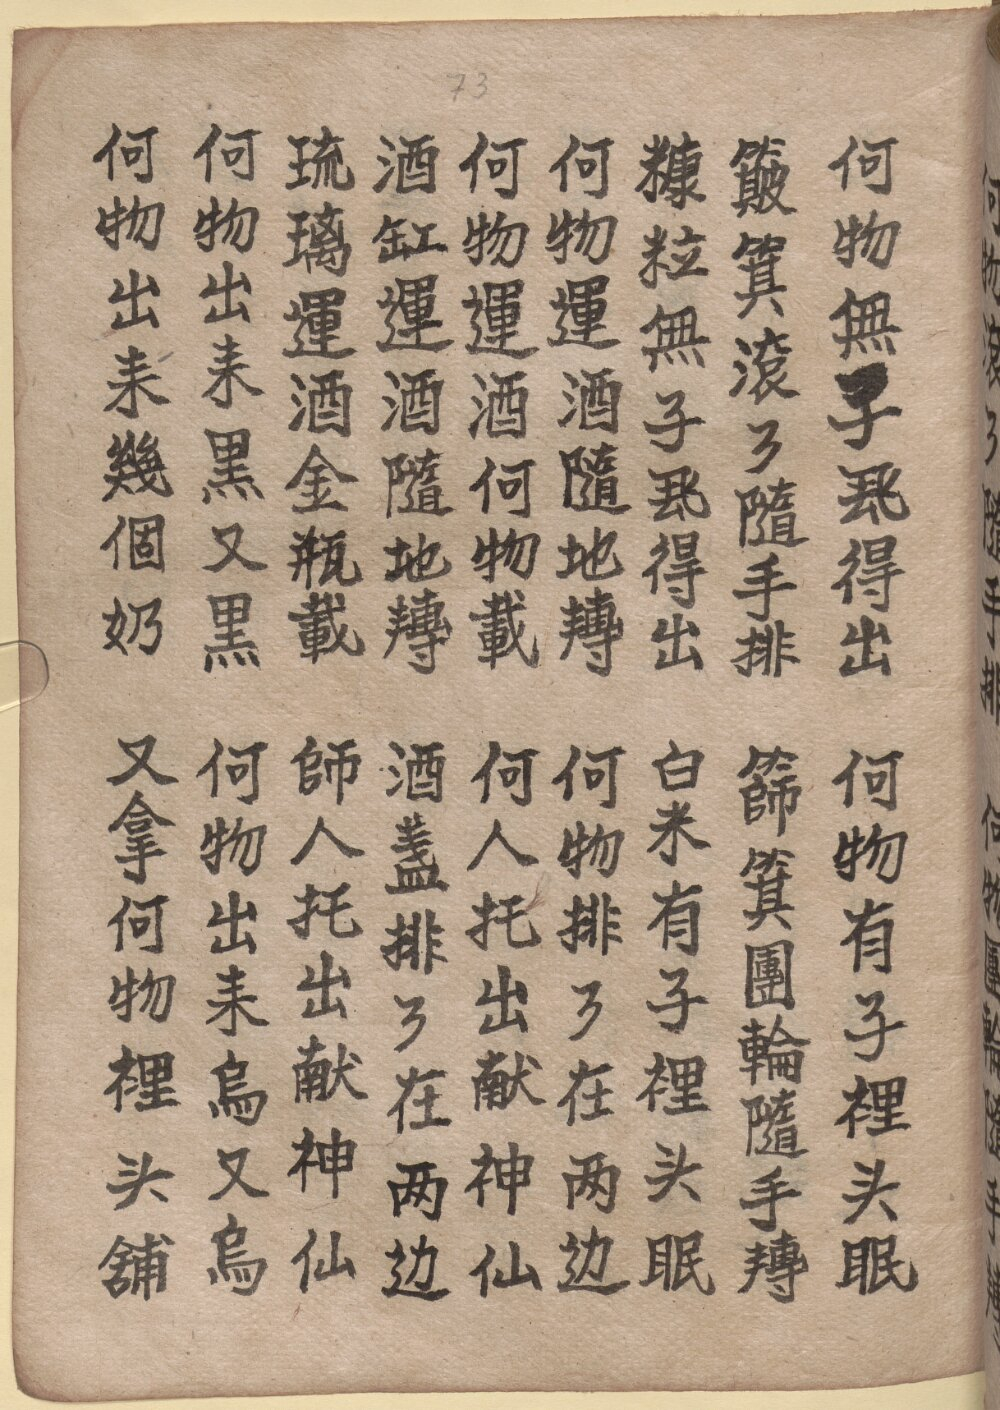 73
何物無子飛得出 何物有子裡头眠
簸箕滾了隨手排 篩箕團輪隨手轉
糠粒無子飛得出 白米有子裡头眠
何物運酒隨地轉 何物排了在两边
何物運酒何物載 何人托出献神仙
酒缸運酒隨地轉 酒盞排了在两边
琉璃運酒金瓶載 師人托出献神仙
何物出来黒又黒 何物出来烏又烏
何物出来幾個奶 又拿何物裡头舖